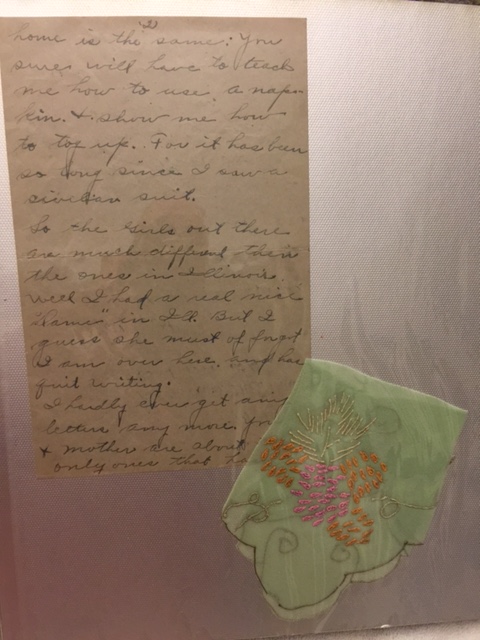 2
home is the same: You
sure will have to teach
me how to use a nap-
kin. & show me how
to tog up. For it has been
so long since I saw a
civilian suit.
So the Girls out there
are much different then
the ones in Illinois.
Well I had a real nice
in Ill. But I
guess she must of forgot
I am over here. and has
quit writing.
I hardly ever get any
letters any more.
& mother are about
only ones that